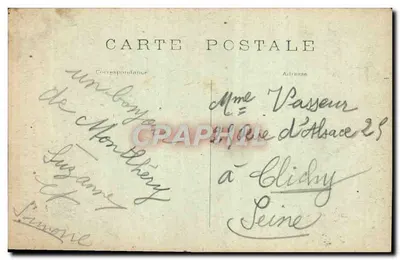 CARTE POSTALE
Correspondance
Adresse
un bonjour
de Montlhéry
Suzanne
et
Simone
Mme Vasseur
Rue d'Alsace 25
à Clichy
Seine